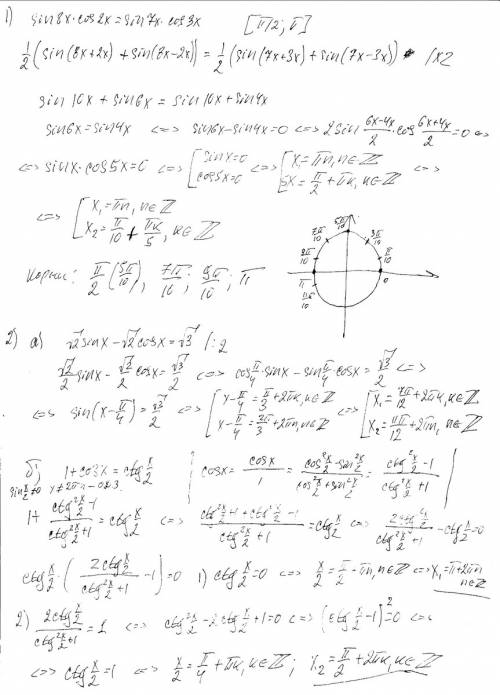 1) sin8x·cos2x=sin7x·cos3x [π/2; π]
1/2(sin(8x+2x)+sin(8x-2x))=1/2(sin(7x+3x)+sin(7x-3x)) |x2
sin10x+sin6x=sin10x+sin4x
sin6x=sin4x <=> sin6x-sin4x=0 <=> 2sin (6x-4x)/2 · cos (6x+4x)/2=0 <=>
<=> sinx·cos5x=0 <=> [sinx=0 <=> [x₁=πn, n∈Z <=>
[cos5x=0 [5x=π/2+πk, k∈Z
<=> [x₁=πn, n∈Z
[x₂=π/10+πk/5, k∈Z
5π/10
7π/10 3π/10
9π/10 π/10
π 0
11π/10
Корни: π/2 (5π/10), 7π/10, 9π/10; π
2) а) √2sinx-√2cosx=√3 |:2
√2/2 sinx-√2/2 cosx=√3/2 <=> cos π/4 · sinx-sin π/4 cosx=√3/2 <=>
<=> sin(x-π/4)=√3/2 <=> [x-π/4=π/3+2πk, k∈Z <=> [x₁=7π/12+2πk, k∈Z
[x-π/4=2π/3+2πn, n∈Z [x₂=11π/12+2πn, n∈Z
б) 1+cosx=ctg x/2 | cosx=cosx/1=(cos²x/2-sin²x/2)/(cos²x/2+sin²x/2)=(ctg²x/2-1)/(ctg²x/2+1) |
sin x/2≠0 x≠2πn - ОДЗ.
1+(ctg²x/2-1)/(ctg²x/2+1)=ctg x/2 <=> (ctg²x/2+1+ctg²x/2-1)/(ctg²x/2+1)=ctg x/2 <=> 2ctg²x/2/(ctg²x/2+1)-ctg x/2=0
ctg x/2·(2ctg x/2/(ctg²x/2+1)-1)=0 1) ctg x/2=0 <=> x/2=π/2+πn, n∈Z <=> x₁=π+2πn n∈Z
2) 2ctg x/2/(ctg²x/2+1)=1 <=> ctg²x/2-2ctg x/2+1=0 <=> (ctg x/2-1)²=0 <=>
<=> ctg x/2=1 <=> x/2=π/4+πk, k∈Z; x₂=π/2+2πk, k∈Z